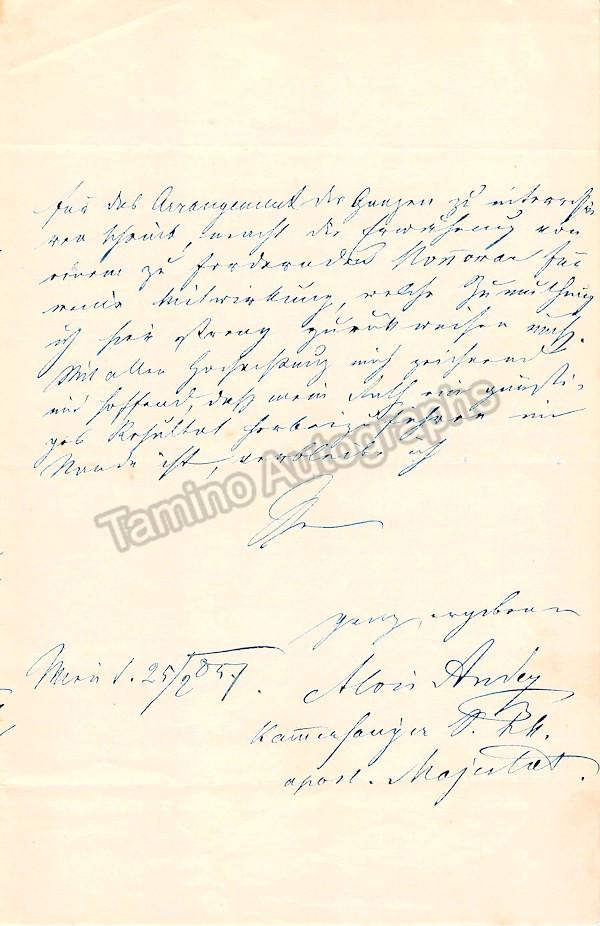 für das Arrangement des Ganzen zu interessi-
ren scheint, macht die Erwähnung von
einem zu fordernden Honorar für
meine Mitwirkung, welche Zumuthung
ich hier streng zurük weisen muß.
Mit aller Hochachtung mich zeichnend
und hoffend, daß mein Rath ein günsti-
ges Resultat herbeizuführen im
Stande ist, verbleibe ich
Ihr
ganz ergebener
Wien d. 25/2 857.
Alois Ander
Kammersänger S. k. k.
apost. Majestät.
Tamino Autographs